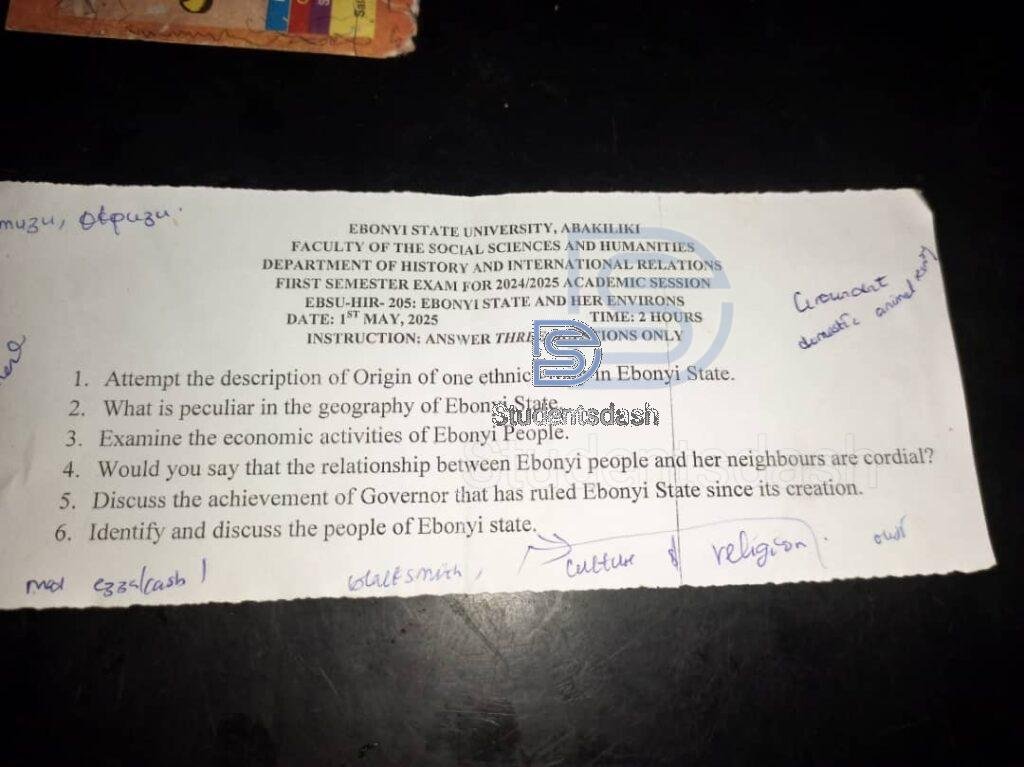 EBONYI STATE UNIVERSITY, ABAKILIKI
FACULTY OF THE SOCIAL SCIENCES AND HUMANITIES
DEPARTMENT OF HISTORY AND INTERNATIONAL RELATIONS
FIRST SEMESTER EXAM FOR 2024/2025 ACADEMIC SESSION
EBSU-HIR- 205: EBONYI STATE AND HER ENVIRONS
DATE: 1ST MAY, 2025 TIME: 2 HOURS
INSTRUCTION: ANSWER ONLY
domestic animal
1. Attempt the description of Origin of one ethnic in Ebonyi State.
2. What is peculiar in the geography of Ebonyi State.
Studentsdash
3. Examine the economic activities of Ebonyi People.
Studentsdash
4. Would you say that the relationship between Ebonyi people and her neighbours are cordial?
5. Discuss the achievement of Governor that has ruled Ebonyi State since its creation.
6. Identify and discuss the people of Ebonyi state.
culture & religion
blacksmith,